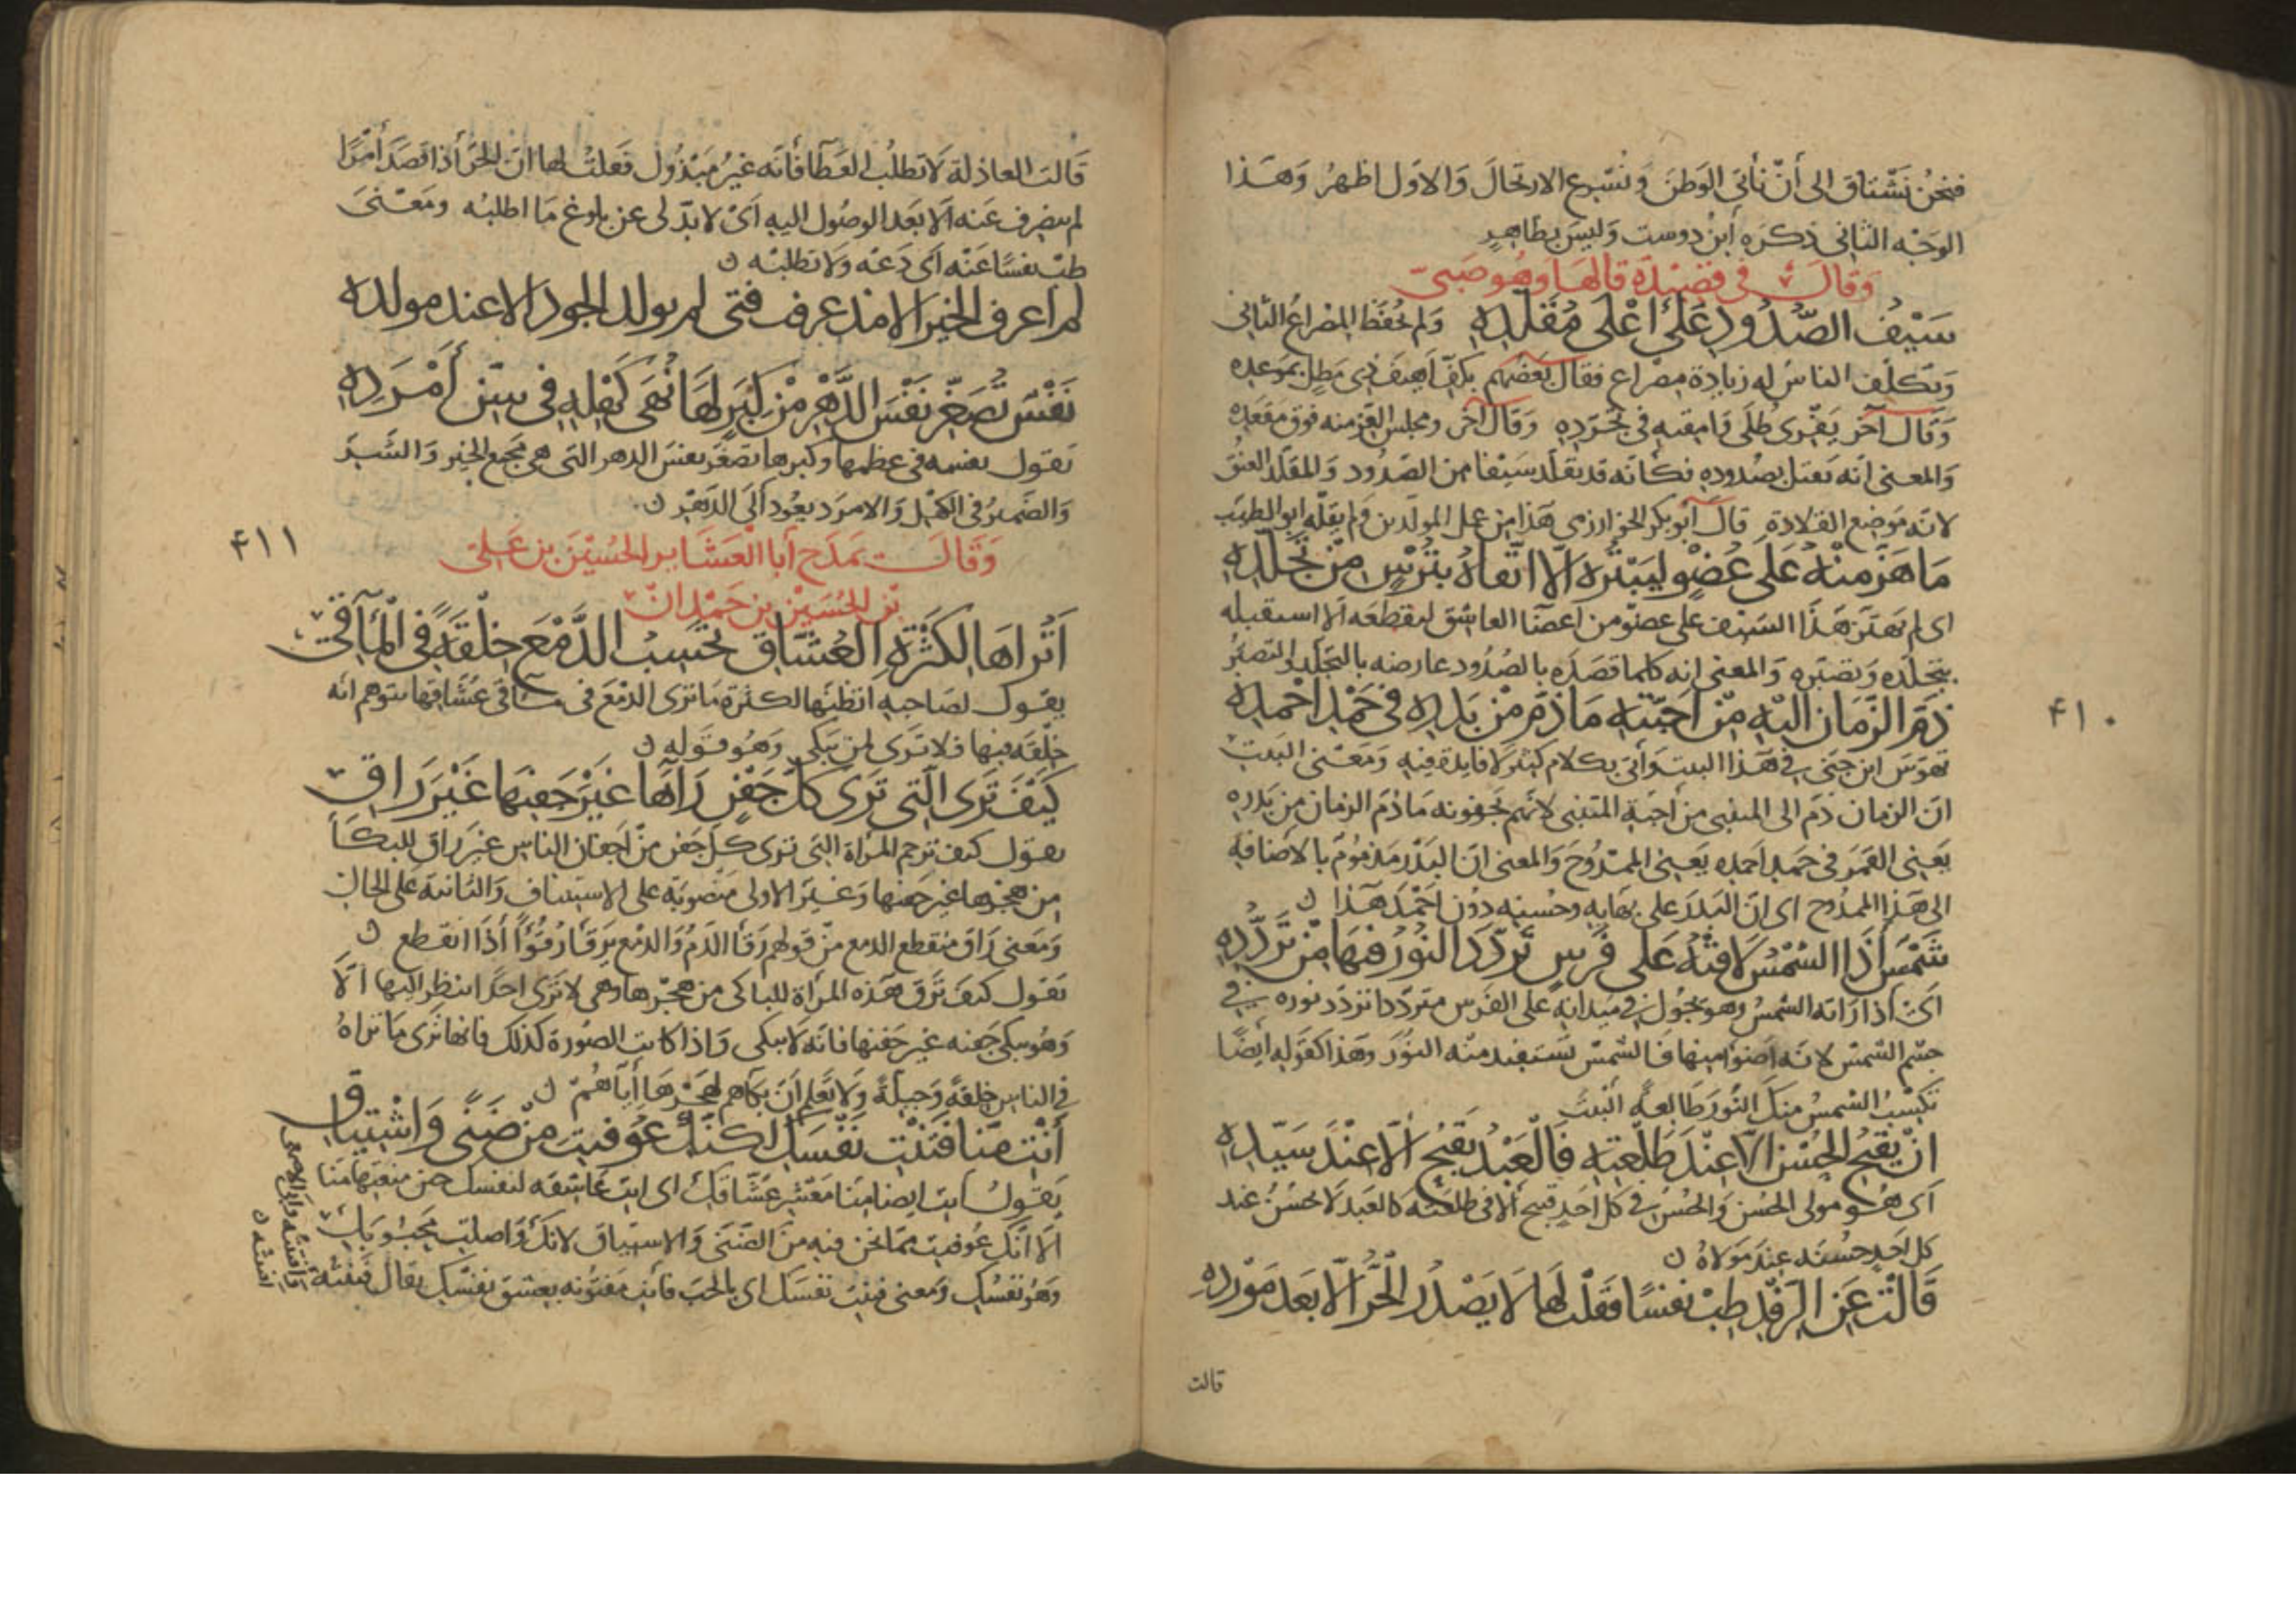 فنحن نشتاق الى أن نأتى الوطن ونسرع الارتحال والاول اظهر وهذا
الوجه الثانى ذكره ابن دوست وليس بظاهر
وقال فى قصيدة قالها وهو صبى
سيف الصدود على اعلى مقلده ولم يحفظ المصراع الثانى
وتكلف الناس له زيادة مصراع فقال بعضهم بكف اهيف ذى مطل بموعده
وقال آخر يفرى طلى وامقيه فى تجرده وقال آخر ومجلس العز منه فوق مقعده
والمعنى انه يقتل بصدوده فكأنه قد تقلد سيفا من الصدود والمقلد العنق
لانه موضع القلادة قال ابو بكر الخوارزمى هذا من عمل المولدين ولم يقله ابو الطيب
ما هز منه على عضو ليبتره الا اتقاه بترس من تجلده
اى لم يهتز هذا السيف على عضو من اعضا العاشق ليقطعه الا استقبله
بتجلده وتصبره والمعنى انه كلما قصده بالصدود عارضه بالتجلد والتصبر
ذم الزمان اليه من احبته ما ذم من بدره فى حمد احمده
تهوس ابن جنى فى هذا البيت وأتى بكلام كثير لا فايدة فيه ومعنى البيت
ان الزمان ذم الى المتنبى من احبة المتنبى لانهم يجفونه ما ذم الزمان من بدره
يعنى القمر فى حمد احمده يعنى الممدوح والمعنى ان البدر مذموم بالاضافة
الى هذا الممدوح اى ان البدر على بهايه وحسنه دون احمد هذا ن
شمس اذا الشمس لاقته على فرس تردد النور فيها من تردده
اى اذا راته الشمس وهو يجول فى ميدانه على الفرس مترددا تردد نوره فى
جسم الشمس لانه اضوأ منها فالشمس تستفيد منه النور وهذا كقوله ايضا
تكسب الشمس منك النور طالعة البيت
ان يقبح الحسن الا عند طلعته فالعبد يقبح الا عند سيده
اى هو مولى الحسن والحسن فى كل احد قبيح الا فى طلعته كالعبد لا يحسن عند
كل احد حسنه عند مولاه ن
قالت عن الرفد طب نفسا فقلت لها لا يصدر الحر الا بعد مورده
قالت
٤١٠
قالت العاذلة لا تطلب العطا فانه غير مبذول فقلت لها ان الحر اذا قصد أمرا
لم ينصرف عنه الا بعد الوصول اليه اى لا بد لى عن بلوغ ما اطلبه ومعنى
طب نفسا عنه اى دعه ولا تطلبه ن
لم اعرف الخير الا مذ عرفت فتى لم يولد الجود الا عند مولده
نفس تصغر نفس الدهر من كبر لها نهى كهله فى سن أمرده
يقول نفسه فى عظمها وكبرها تصغر نفس الدهر التى هى مجمع الخير والشر
والضمير فى الكهل والامرد يعود الى الدهر ن
وقال يمدح أبا العشاير الحسين بن على
بن الحسين بن حمدان
أتراها لكثرة العشاق تحسب الدمع خلقة فى المآقى
يقول لصاحبه اتظنها لكثرة ما ترى الدمع فى مآقى عشاقها تتوهم انه
خلقة فيها فلا ترى لمن يبكى وهو قوله ن
كيف ترى التى ترى كل جفن رآها غير جفنها غير راق
يقول كيف ترحم المراة التى ترى كل جفن من اجفان الناس غير راق للبكا
من هجرها غير جفنها وغير الاولى منصوبة على الاستيناف والثانية على الحال
ومعنى راق منقطع الدمع من قولهم رقا الدم والدمع يرقا رقوءا اذا انقطع ن
يقول كيف ترق هذه المراة للباكى من هجرها وهى لا ترى احدا ينظر اليها الا
وهو يبكى جفنه غير جفنها فانه لا يبكى واذا كانت الصورة كذلك فانها ترى ما تراه
فى الناس خلقة وجبلة ولا تعلم ان بكاهم لهجرها اياهم ن
أنت منا فتنت نفسك لكنك عوفيت من ضنى واشتياق
يقول انت ايضا منا معشر عشاقك اى انت عاشقة لنفسك حين منعتها منا
الا انك عوفيت مما نحن فيه من الضنى والاشتياق لانك واصلت محبوبك
وهو نفسك ومعنى فتنت نفسك اى بالحب فانت مفتونة بعشق نفسك يقال فتنته
وافتنته وابى الاصمعى
افتنته ن
٤١١